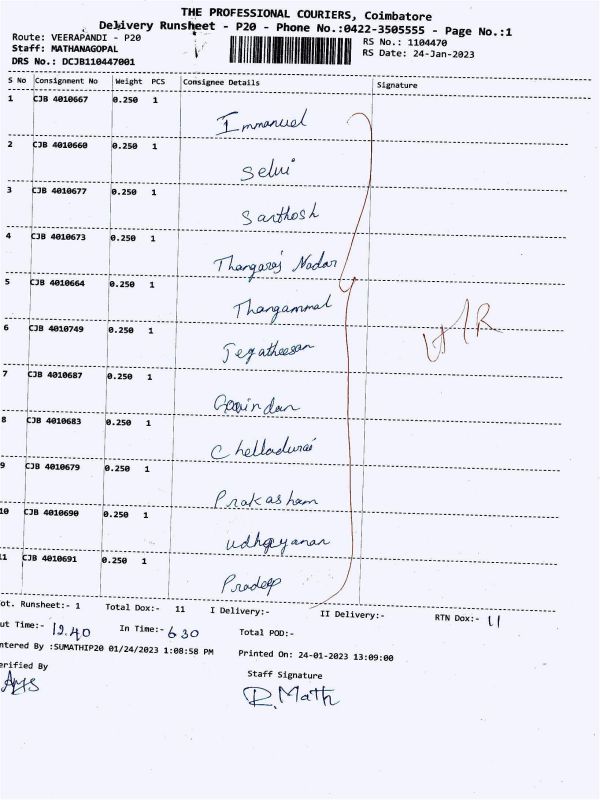 THE PROFESSIONAL COURIERS, Coimbatore
Delivery Runsheet - P20 - Phone No.:0422-3505555 - Page No.:1
Route: VEERAPANDI - P20
RS No.: 1104470
Staff: MATHANAGOPAL
RS Date: 24-Jan-2023
DRS No.: DCJB110447001
S No Consignment No Weight PCS Consignee Details Signature
1 CJB 4010667 0.250 1 Immanuel
2 CJB 4010660 0.250 1 Selvi
3 CJB 4010677 0.250 1 Santhosh
4 CJB 4010673 0.250 1 Thangaraj Nadar
5 CJB 4010664 0.250 1 Thangammal
6 CJB 4010749 0.250 1 Jegatheesan
7 CJB 4010687 0.250 1 Govindan
8 CJB 4010683 0.250 1 Chelladurai
9 CJB 4010679 0.250 1 Prakasham
10 CJB 4010690 0.250 1 Udhayanan
11 CJB 4010691 0.250 1 Pradeep
ot. Runsheet:- 1 Total Dox:- 11 I Delivery:- II Delivery:- RTN Dox:- 11
ut Time:- 12.40 In Time:- 6 30 Total POD:-
ntered By :SUMATHIP20 01/24/2023 1:08:58 PM Printed On: 24-01-2023 13:09:00
erified By Staff Signature
R. Math